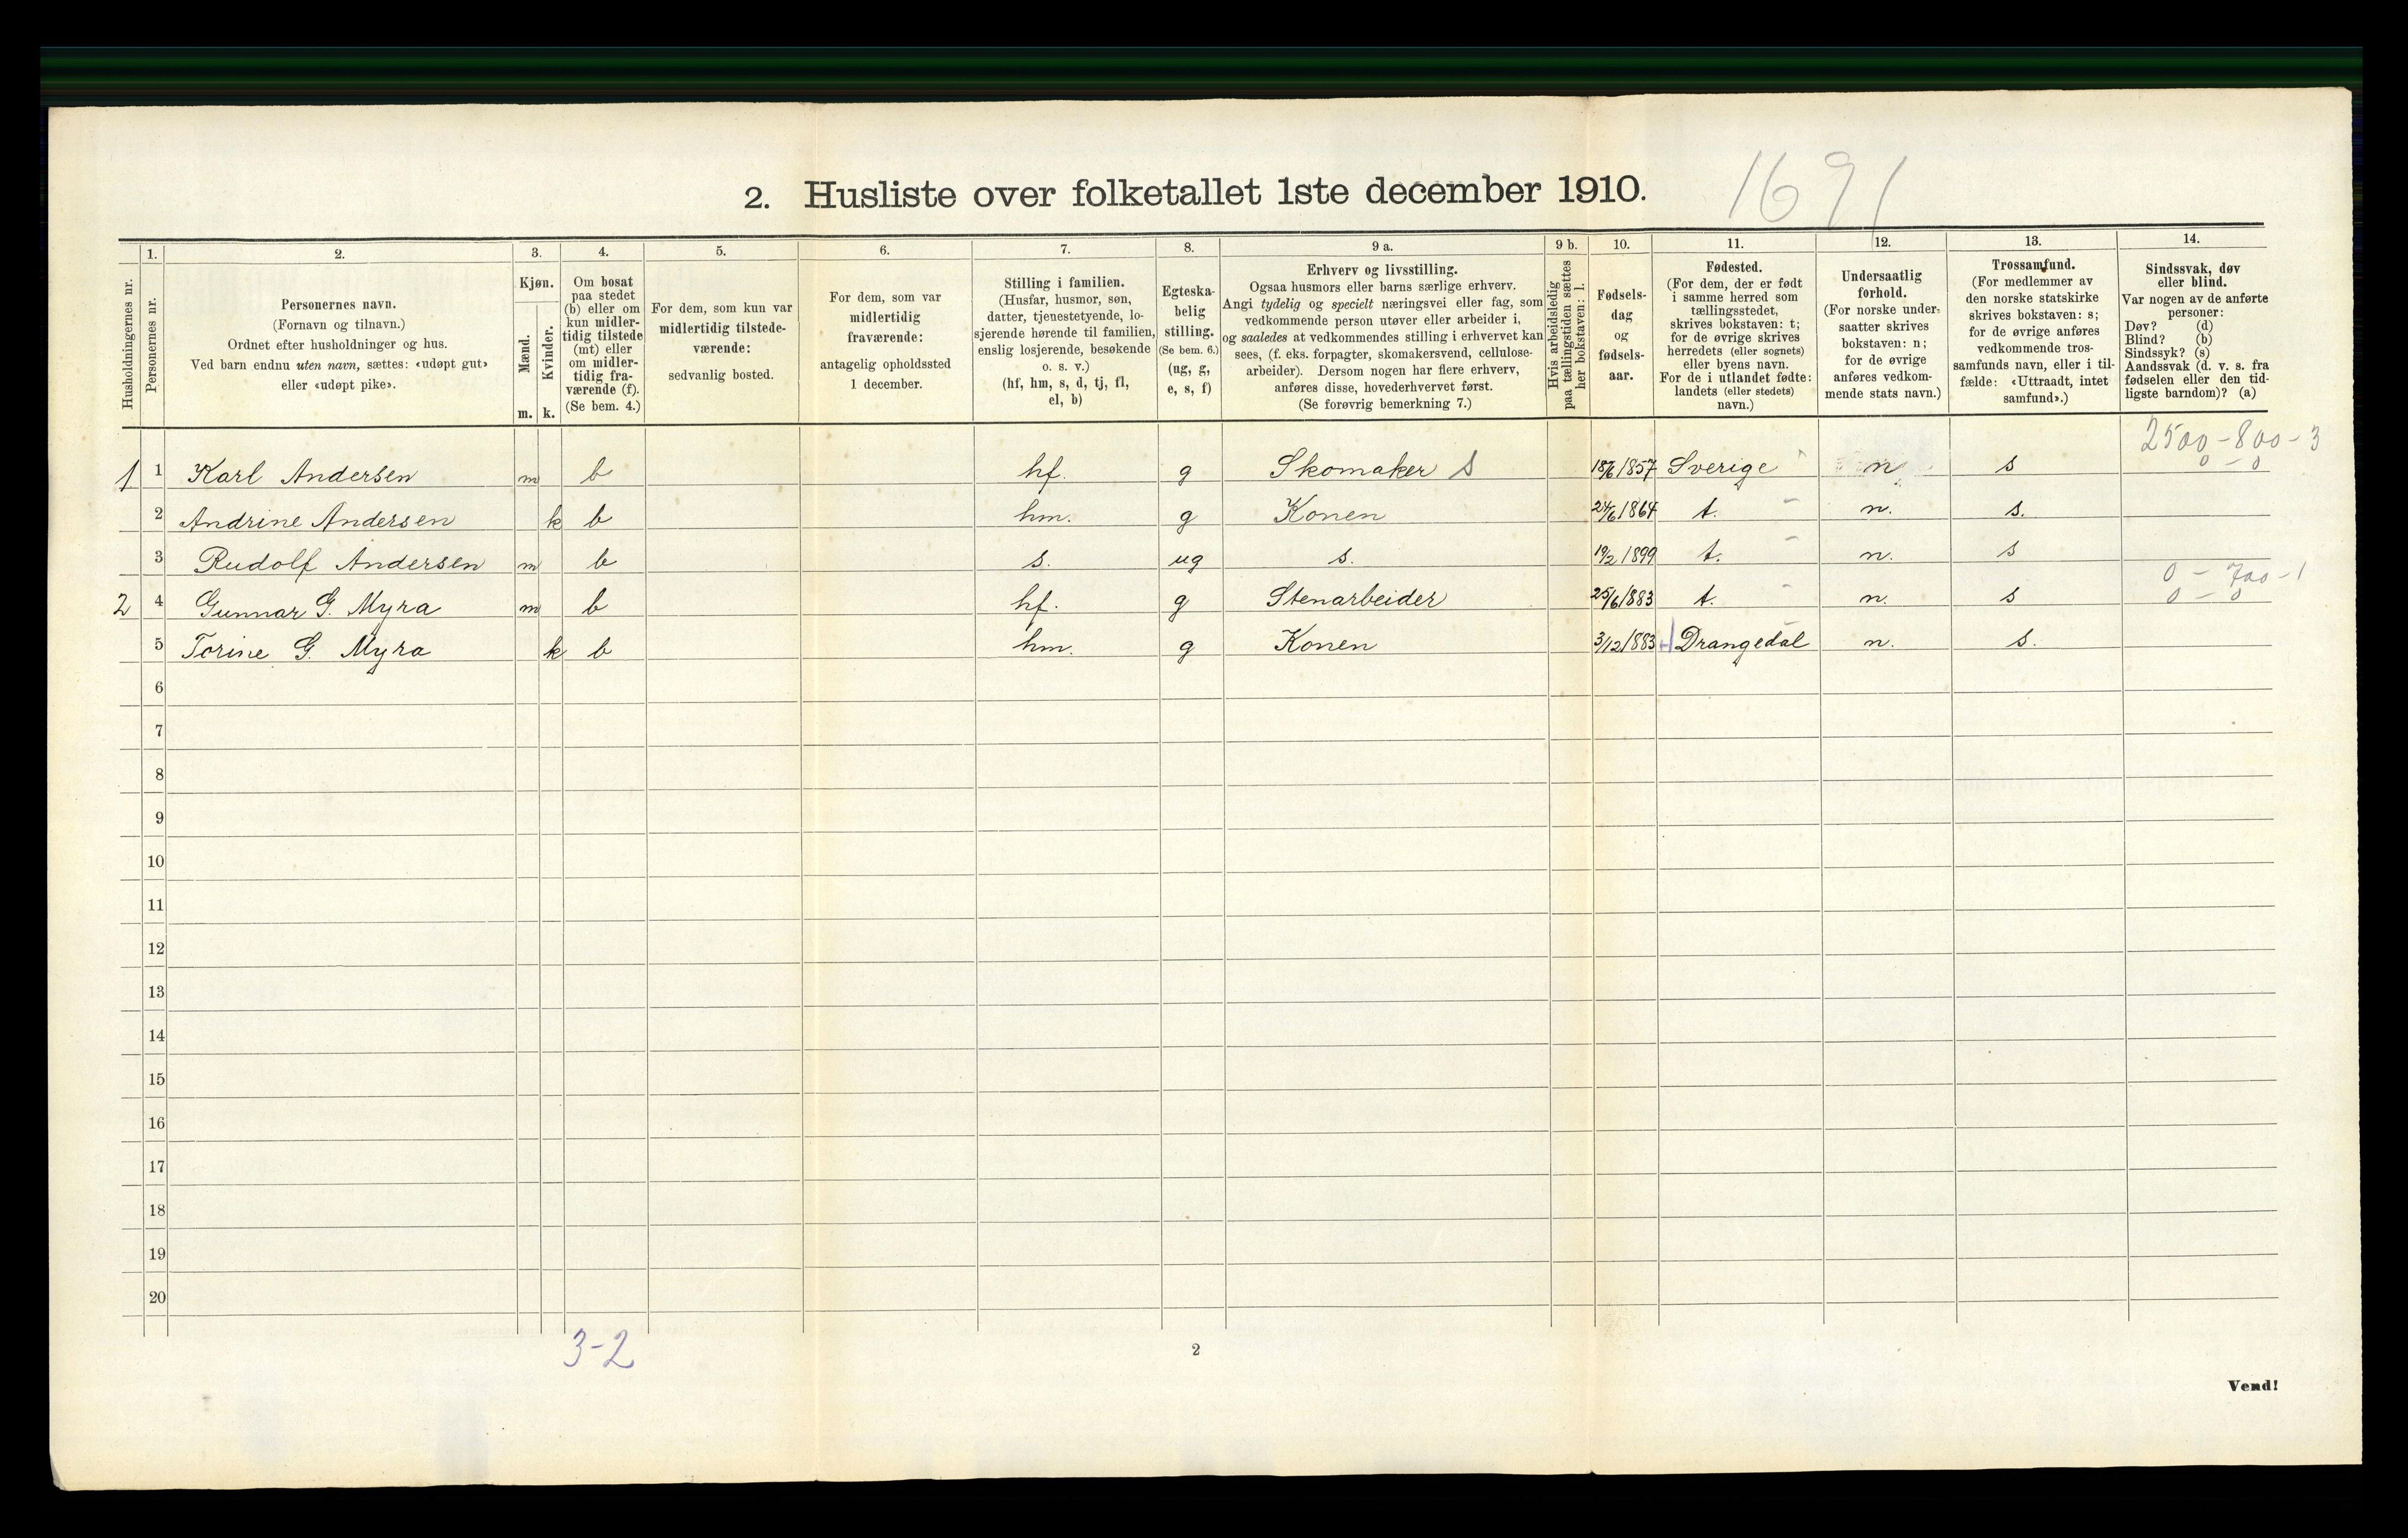 2. Husliste over folketallet 1ste december 1910. 1691
Husholdningernes nr.
1. Personernes nr.
2. Personernes navn.
(Fornavn og tilnavn.)
Ordnet efter husholdninger og hus.
Ved barn endnu uten navn, sættes: «udøpt gut»
eller «udøpt pike».
3. Kjøn.
Mænd. m.
Kvinder. k.
4. Om bosat
paa stedet
(b) eller om
kun midler-
tidig tilstede
(mt) eller
om midler-
tidig fra-
værende (f).
(Se bem. 4.)
5. For dem, som kun var
midlertidig tilstede-
værende:
sedvanlig bosted.
6. For dem, som var
midlertidig
fraværende:
antagelig opholdssted
1 december.
7. Stilling i familien.
(Husfar, husmor, søn,
datter, tjenestetyende, lo-
sjerende hørende til familien,
enslig losjerende, besøkende
o. s. v.)
(hf, hm, s, d, tj, fl,
el, b)
8. Egteska-
belig
stilling.
(Se bem. 6.)
(ug, g,
e, s, f)
9 a. Erhverv og livsstilling.
Ogsaa husmors eller barns særlige erhverv.
Angi tydelig og specielt næringsvei eller fag, som
vedkommende person utøver eller arbeider i,
og saaledes at vedkommendes stilling i erhvervet kan
sees, (f. eks. forpagter, skomakersvend, cellulose-
arbeider). Dersom nogen har flere erhverv,
anføres disse, hovederhvervet først.
(Se forøvrig bemerkning 7.)
9 b. Hvis arbeidsledig
paa tællingstiden sættes
her bokstaven: l.
10. Fødsels-
dag
og
fødsels-
aar.
11. Fødested.
(For dem, der er født
i samme herred som
tællingsstedet,
skrives bokstaven: t;
for de øvrige skrives
herredets (eller sognets)
eller byens navn.
For de i utlandet fødte:
landets (eller stedets)
navn.)
12. Undersaatlig
forhold.
(For norske under-
saatter skrives
bokstaven: n;
for de øvrige
anføres vedkom-
mende stats navn.)
13. Trossamfund.
(For medlemmer av
den norske statskirke
skrives bokstaven: s;
for de øvrige anføres
vedkommende tros-
samfunds navn, eller i til-
fælde: «Uttraadt, intet
samfund».)
14. Sindssvak, døv
eller blind.
Var nogen av de anførte
personer:
Døv? (d)
Blind? (b)
Sindssyk? (s)
Aandssvak (d. v. s. fra
fødselen eller den tid-
ligste barndom)? (a)
2500-800-3
1 1 Karl Andersen m b hf. g Skomaker S 18/6 1857 Sverige n s 0-0
2 Andrine Andersen k b hm. g Konen 24/6 1864 t. n. s.
3 Rudolf Andersen m b s. ug s. 19/2 1899 t. n. s
0 - 700-1
2 4 Gunnar G. Myra m b hf. g Stenarbeider 25/6 1883 t. n. s 0-0
5 Torine G. Myra k b hm. g Konen 3/12 1883 Drangedal n. s.
6
7
8
9
10
11
12
13
14
15
16
17
18
19
20
3-2
2
Vend!